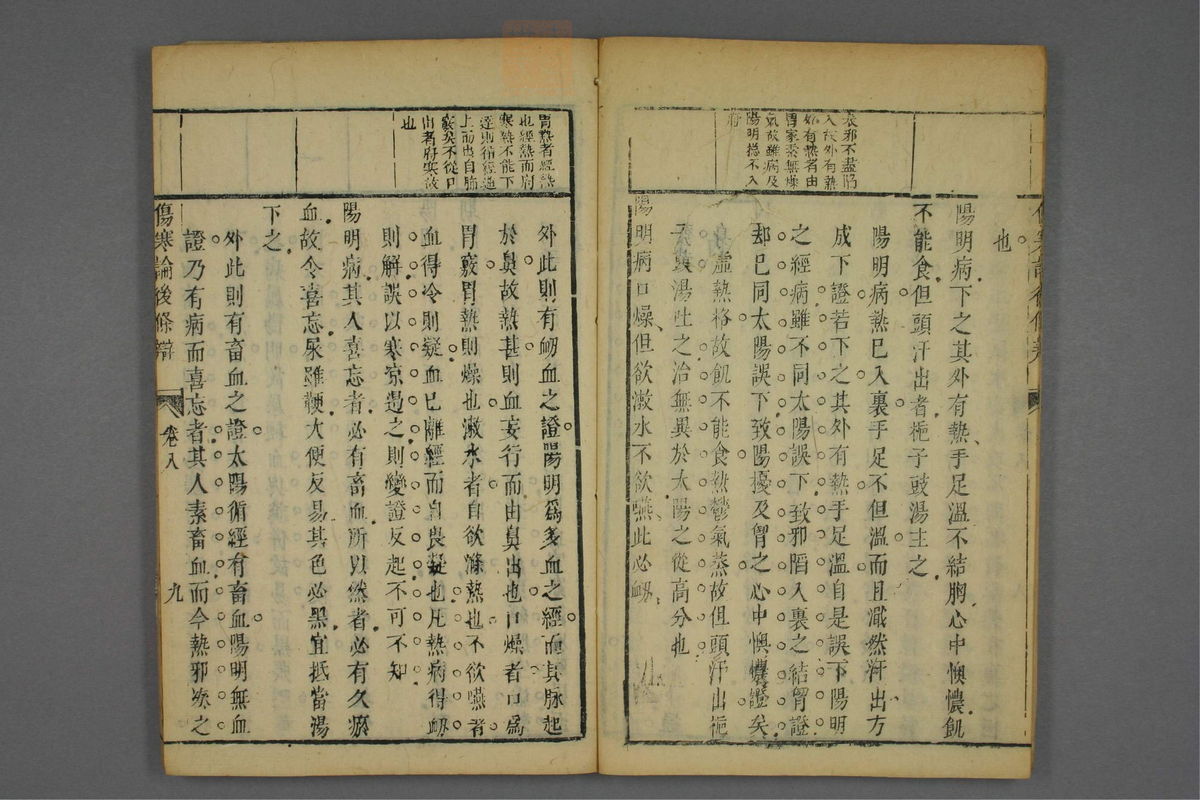 也
陽明病下之其外有熱手足溫不結胸心中懊憹飢
不能食但頭汗出者梔子豉湯主之
陽明病熱已入裏手足不但溫而且濈然汗出方
成下證若下之其外有熱手足溫自是誤下陽明
之經病雖不同太陽誤下致邪陷入裏之結胷證
却已同太陽誤下致陽擾及胷之心中懊憹證矣
虛熱格故飢不能食熱鬱氣蒸故但頭汗出梔
湯吐之治無異於太陽之從高分也
陽明病口燥但欲漱水不欲嚥此必衂
表邪不盡陷
入故外有熱
有熱者由
胃家素無燥
氣故雖病及
陽明總不入
府
外此則有衂血之證陽明爲多血之經而其脉起
於鼻故熱甚則血妄行而由鼻出也口燥者口爲
胃竅胃熱則燥也漱水者自欲滌熱也不欲嚥者
血得冷則凝血已離經而自畏凝也凡熱病得衂
則解誤以寒凉遏之則變證反起不可不知
陽明病其人喜忘者必有畜血所以然者必有久瘀
血故令喜忘屎雖鞕大便反易其色必黑宜抵當湯
下之
外此則有畜血之證太陽循經有畜血陽明無血
證乃有病而喜忘者其人素畜血而今熱邪之
胃熱者經熱
也經熱而府
寒熱不能下
達則循經逆
上而出自師
竅矣不從口
出者府寒故
也
傷寒論後條辯
卷八
九